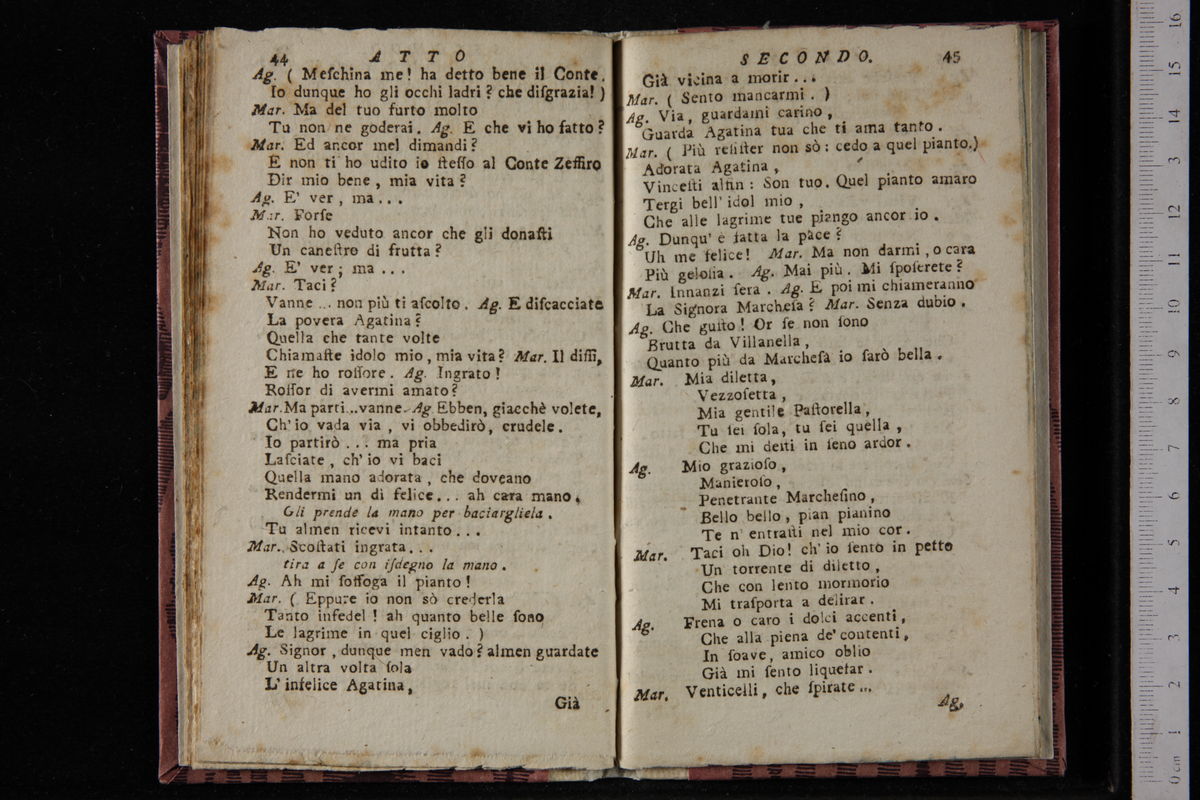 44 ATTO
Ag. ( Meſchina me! ha detto bene il Conte.
Io dunque ho gli occhi ladri? che diſgrazia! )
Mar. Ma del tuo furto molto
Tu non ne goderai. Ag. E che vi ho fatto?
Mar. Ed ancor mel dimandi?
E non ti ho udito io ſteſſo al Conte Zeffiro
Dir mio bene, mia vita?
Ag. E' ver, ma...
Mar. Forſe
Non ho veduto ancor che gli donaſti
Un caneſtro di frutta?
Ag. E' ver; ma...
Mar. Taci?
Vanne... non più ti aſcolto. Ag. E diſcacciate
La povera Agatina?
Quella che tante volte
Chiamaſte idolo mio, mia vita? Mar. Il diſſi,
E ne ho roſſore. Ag. Ingrato!
Roſſor di avermi amato?
Mar. Ma parti...vanne. Ag. Ebben, giacchè volete,
Ch' io vada via, vi obbedirò, crudele.
Io partirò... ma pria
Laſciate, ch' io vi baci
Quella mano adorata, che doveano
Rendermi un dì felice... ah cara mano.
Gli prende la mano per baciargliela.
Tu almen ricevi intanto...
Mar. Scoſtati ingrata...
tira a ſe con iſdegno la mano.
Ag. Ah mi ſoffoga il pianto!
Mar. ( Eppure io non sò crederla
Tanto infedel! ah quanto belle ſono
Le lagrime in quel ciglio. )
Ag. Signor, dunque men vado? almen guardate
Un altra volta ſola
L' infelice Agatina,
Già
SECONDO. 45
Già vicina a morir...
Mar. ( Sento mancarmi. )
Ag. Via, guardami carino,
Guarda Agatina tua che ti ama tanto.
Mar. ( Più reſiſter non sò: cedo a quel pianto.)
Adorata Agatina,
Vinceſti alfin: Son tuo. Quel pianto amaro
Tergi bell' idol mio,
Che alle lagrime tue piango ancor io.
Ag. Dunqu' è fatta la pace?
Uh me felice! Mar. Ma non darmi, o cara
Più geloſia. Ag. Mai più. Mi ſpoſerete?
Mar. Innanzi ſera. Ag. E poi mi chiameranno
La Signora Marcheſa? Mar. Senza dubio.
Ag. Che guſto! Or ſe non ſono
Brutta da Villanella,
Quanto più da Marcheſa io ſarò bella.
Mar. Mia diletta,
Vezzoſetta,
Mia gentile Paſtorella,
Tu ſei ſola, tu ſei quella,
Che mi deſti in ſeno ardor.
Ag. Mio grazioſo,
Manieroſo,
Penetrante Marcheſino,
Bello bello, pian pianino
Te n' entraſti nel mio cor.
Mar. Taci oh Dio! ch' io ſento in petto
Un torrente di diletto,
Che con lento mormorio
Mi traſporta a delirar.
Ag. Frena o caro i dolci accenti,
Che alla piena de' contenti,
In ſoave, amico oblio
Già mi ſento liquefar.
Mar. Venticelli, che ſpirate...
Ag.
16
15
14
13
12
11
10
9
8
7
6
5
4
3
2
1
0 cm